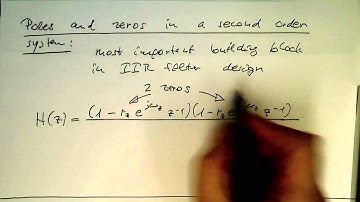 Poles and zeros in a second order
system: most important building block
in IIR filter design
2 zeros
H(z) = (1 - r_z e^{jω_z} z^{-1})(1 - r_z e z^{-1})